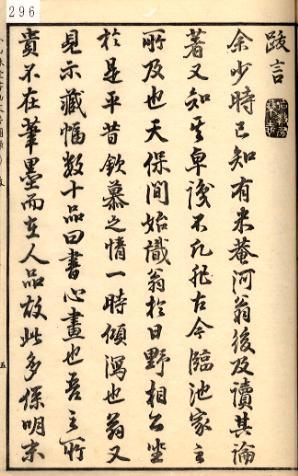 296
跋言
余少時已知有米菴河翁後及讀其論
著又知其卓識不凡非古今臨池家之
所及也天保間始識翁於日野相公坐
於是平昔欽慕之情一時傾瀉也翁又
見示藏幅數十品曰書心畫也吾之所
貴不在筆墨而在人品故此多深明末
五